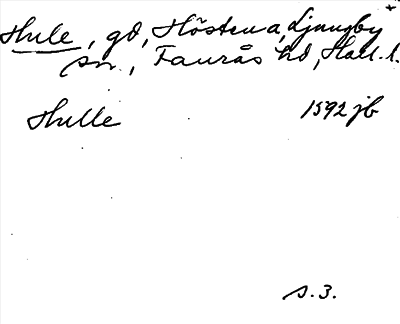 Hule, gd, Höstena, Ljungby
sn., Faurås hd, Hall. l.
Hulle 1592 jb
s. 3.